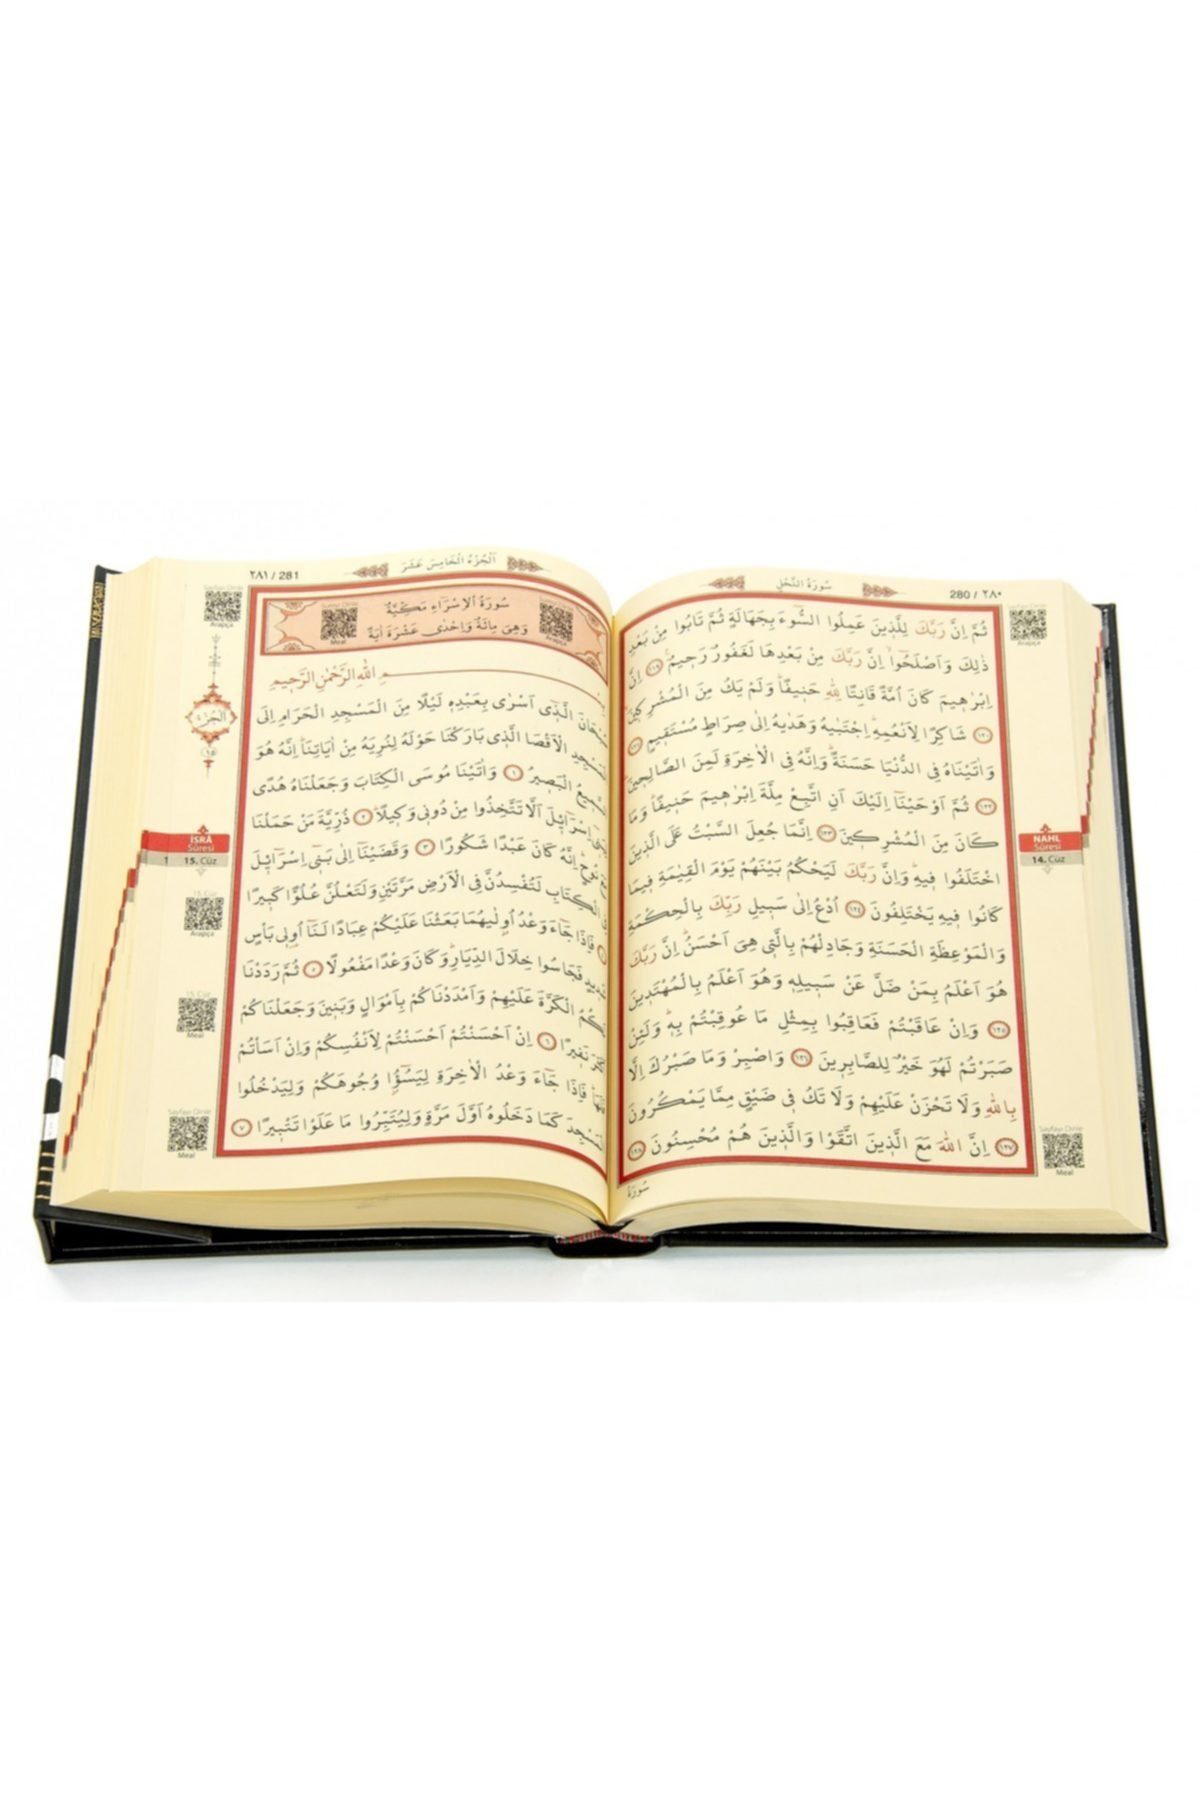 سُورَةُ النَّحْلِ
280 / ٢٨٠
ثُمَّ اِنَّ رَبَّكَ لِلَّذ۪ينَ عَمِلُوا السُّٓوءَ بِجَهَالَةٍ ثُمَّ تَابُوا مِنْ بَعْدِ
ذٰلِكَ وَاَصْلَحُٓوا اِنَّ رَبَّكَ مِنْ بَعْدِهَا لَغَفُورٌ رَح۪يمٌ ﴿١١٩﴾ اِنَّ
اِبْرٰه۪يمَ كَانَ اُمَّةً قَانِتًا لِلّٰهِ حَن۪يفًا وَلَمْ يَكُ مِنَ الْمُشْرِك۪ينَ
﴿١٢٠﴾ شَاكِرًا لِاَنْعُمِهِ اِجْتَبٰيهُ وَهَدٰيهُ اِلٰى صِرَاطٍ مُسْتَق۪يمٍ ﴿١٢١﴾
وَاٰتَيْنَاهُ فِي الدُّنْيَا حَسَنَةً وَاِنَّهُ فِي الْاٰخِرَةِ لَمِنَ الصَّالِح۪ينَ
﴿١٢٢﴾ ثُمَّ اَوْحَيْنَٓا اِلَيْكَ اَنِ اتَّبِعْ مِلَّةَ اِبْرٰه۪يمَ حَن۪يفًا وَمَا
كَانَ مِنَ الْمُشْرِك۪ينَ ﴿١٢٣﴾ اِنَّمَا جُعِلَ السَّبْتُ عَلَى الَّذ۪ينَ
اخْتَلَفُوا ف۪يهِ وَاِنَّ رَبَّكَ لَيَحْكُمُ بَيْنَهُمْ يَوْمَ الْقِيٰمَةِ ف۪يمَا
كَانُوا ف۪يهِ يَخْتَلِفُونَ ﴿١٢٤﴾ اُدْعُ اِلٰى سَب۪يلِ رَبِّكَ بِالْحِكْمَةِ
وَالْمَوْعِظَةِ الْحَسَنَةِ وَجَادِلْهُمْ بِالَّت۪ي هِيَ اَحْسَنُ اِنَّ رَبَّكَ
هُوَ اَعْلَمُ بِمَنْ ضَلَّ عَنْ سَب۪يلِه۪ وَهُوَ اَعْلَمُ بِالْمُهْتَد۪ينَ
﴿١٢٥﴾ وَاِنْ عَاقَبْتُمْ فَعَاقِبُوا بِمِثْلِ مَا عُوقِبْتُمْ بِه۪ وَلَئِنْ
صَبَرْتُمْ لَهُوَ خَيْرٌ لِلصَّابِر۪ينَ ﴿١٢٦﴾ وَاصْبِرْ وَمَا صَبْرُكَ اِلَّا
بِاللّٰهِ وَلَا تَحْزَنْ عَلَيْهِمْ وَلَا تَكُ ف۪ي ضَيْقٍ مِمَّا يَمْكُرُونَ
﴿١٢٧﴾ اِنَّ اللّٰهَ مَعَ الَّذ۪ينَ اتَّقَوْا وَالَّذ۪ينَ هُمْ مُحْسِنُونَ ﴿١٢٨﴾
سُورَةُ
Arapça
NAHL
Sûresi
14. Cüz
Sayfayı Dinle
Meal
اَلْجُزْءُ الْخَامِسَ عَشَرَ
٢٨١ / 281
سُورَةُ الْاِسْرَٓاءِ مَكِّيَّةٌ
وَهِيَ مِائَةٌ وَاِحْدٰى عَشْرَةَ اٰيَةً
Meal
Arapça
بِسْمِ اللّٰهِ الرَّحْمٰنِ الرَّح۪يمِ
سُبْحَانَ الَّذ۪ٓي اَسْرٰى بِعَبْدِه۪ لَيْلًا مِنَ الْمَسْجِدِ الْحَرَامِ اِلَى
الْمَسْجِدِ الْاَقْصَا الَّذ۪ي بَارَكْنَا حَوْلَهُ لِنُرِيَهُ مِنْ اٰيَاتِنَا اِنَّهُ هُوَ
السَّم۪يعُ الْبَص۪يرُ ﴿١﴾ وَاٰتَيْنَا مُوسَى الْكِتَابَ وَجَعَلْنَاهُ هُدًى
لِبَن۪ٓي اِسْرَٓائ۪لَ اَلَّا تَتَّخِذُوا مِنْ دُون۪ي وَك۪يلًا ﴿٢﴾ ذُرِّيَّةَ مَنْ حَمَلْنَا
مَعَ نُوحٍ اِنَّهُ كَانَ عَبْدًا شَكُورًا ﴿٣﴾ وَقَضَيْنَٓا اِلٰى بَن۪ٓي اِسْرَٓائ۪لَ
فِي الْكِتَابِ لَتُفْسِدُنَّ فِي الْاَرْضِ مَرَّتَيْنِ وَلَتَعْلُنَّ عُلُوًّا كَب۪يرًا
﴿٤﴾ فَاِذَا جَٓاءَ وَعْدُ اُو۫لٰيهُمَا بَعَثْنَا عَلَيْكُمْ عِبَادًا لَنَٓا اُو۬ل۪ي بَأْسٍ
شَد۪يدٍ فَجَاسُوا خِلَالَ الدِّيَارِ وَكَانَ وَعْدًا مَفْعُولًا ﴿٥﴾ ثُمَّ رَدَدْنَا
لَكُمُ الْكَرَّةَ عَلَيْهِمْ وَاَمْدَدْنَاكُمْ بِاَمْوَالٍ وَبَن۪ينَ وَجَعَلْنَاكُمْ
اَكْثَرَ نَف۪يرًا ﴿٦﴾ اِنْ اَحْسَنْتُمْ اَحْسَنْتُمْ لِاَنْفُسِكُمْ وَاِنْ اَسَأْتُمْ
فَلَهَا فَاِذَا جَٓاءَ وَعْدُ الْاٰخِرَةِ لِيَسُٓؤُا وُجُوهَكُمْ وَلِيَدْخُلُوا
الْمَسْجِدَ كَمَا دَخَلُوهُ اَوَّلَ مَرَّةٍ وَلِيُتَبِّرُوا مَا عَلَوْا تَتْب۪يرًا ﴿٧﴾
Sayfayı Dinle
Arapça
اَلْجُزْءُ
١٥
İSRÂ
Sûresi
1 15. Cüz
15. Cüz
Arapça
15. Cüz
Meal
Sayfayı Dinle
Meal